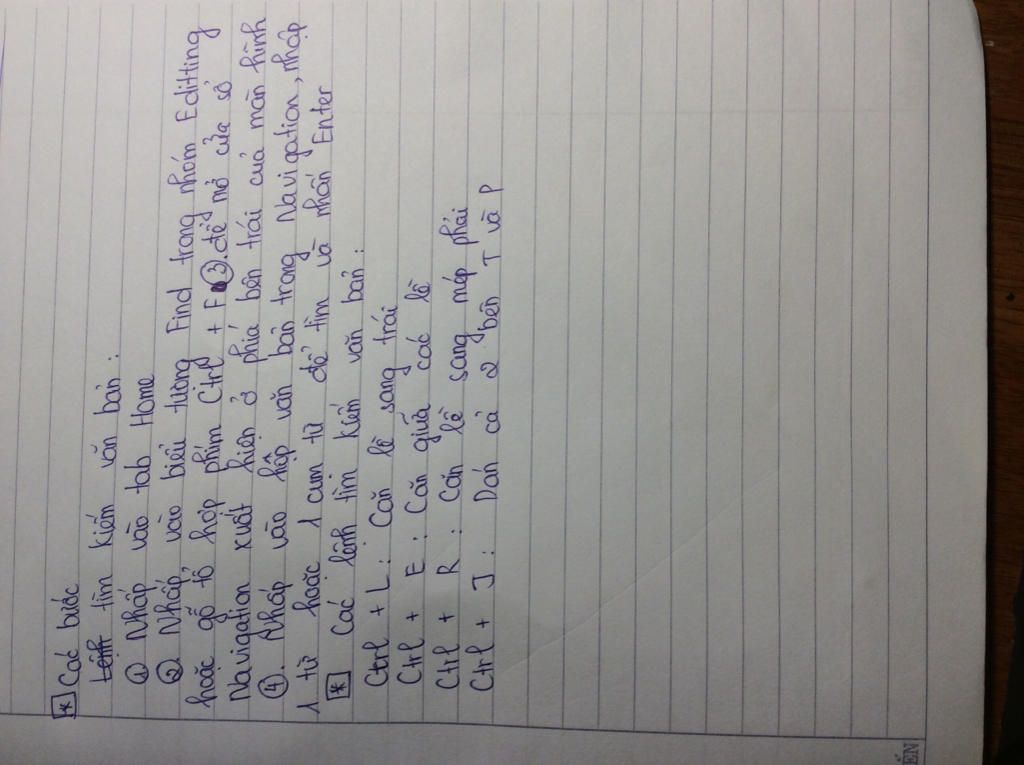 * Các bước
Lệnh tìm kiếm văn bản :
① Nhấp vào tab Home
② Nhấp vào biểu tượng Find trong nhóm Editting
hoặc gõ tổ hợp phím Ctrl + F ③. để mở cửa sổ
Navigation xuất hiện ở phía bên trái của màn hình
④. Nhấp vào hộp văn bản trong Navigation, nhập
1 từ hoặc 1 cụm từ để tìm và nhấn Enter
* Các lệnh tìm kiếm văn bản :
Ctrl + L : Căn lề sang trái
Ctrl + E : Căn giữa các lề
Ctrl + R : Căn lề sang mép phải
Ctrl + J : Dán cả 2 bên T và P
ÊN